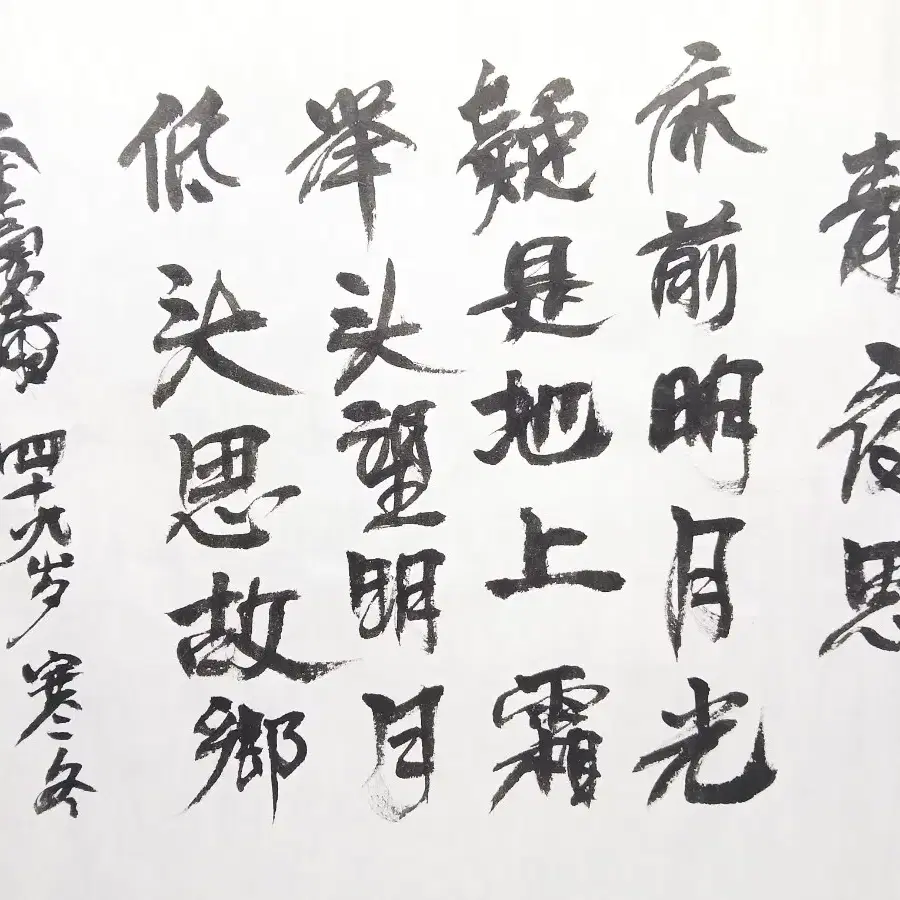 静夜思
床前明月光
疑是地上霜
举头望明月
低头思故鄉
四十九岁 寒冬